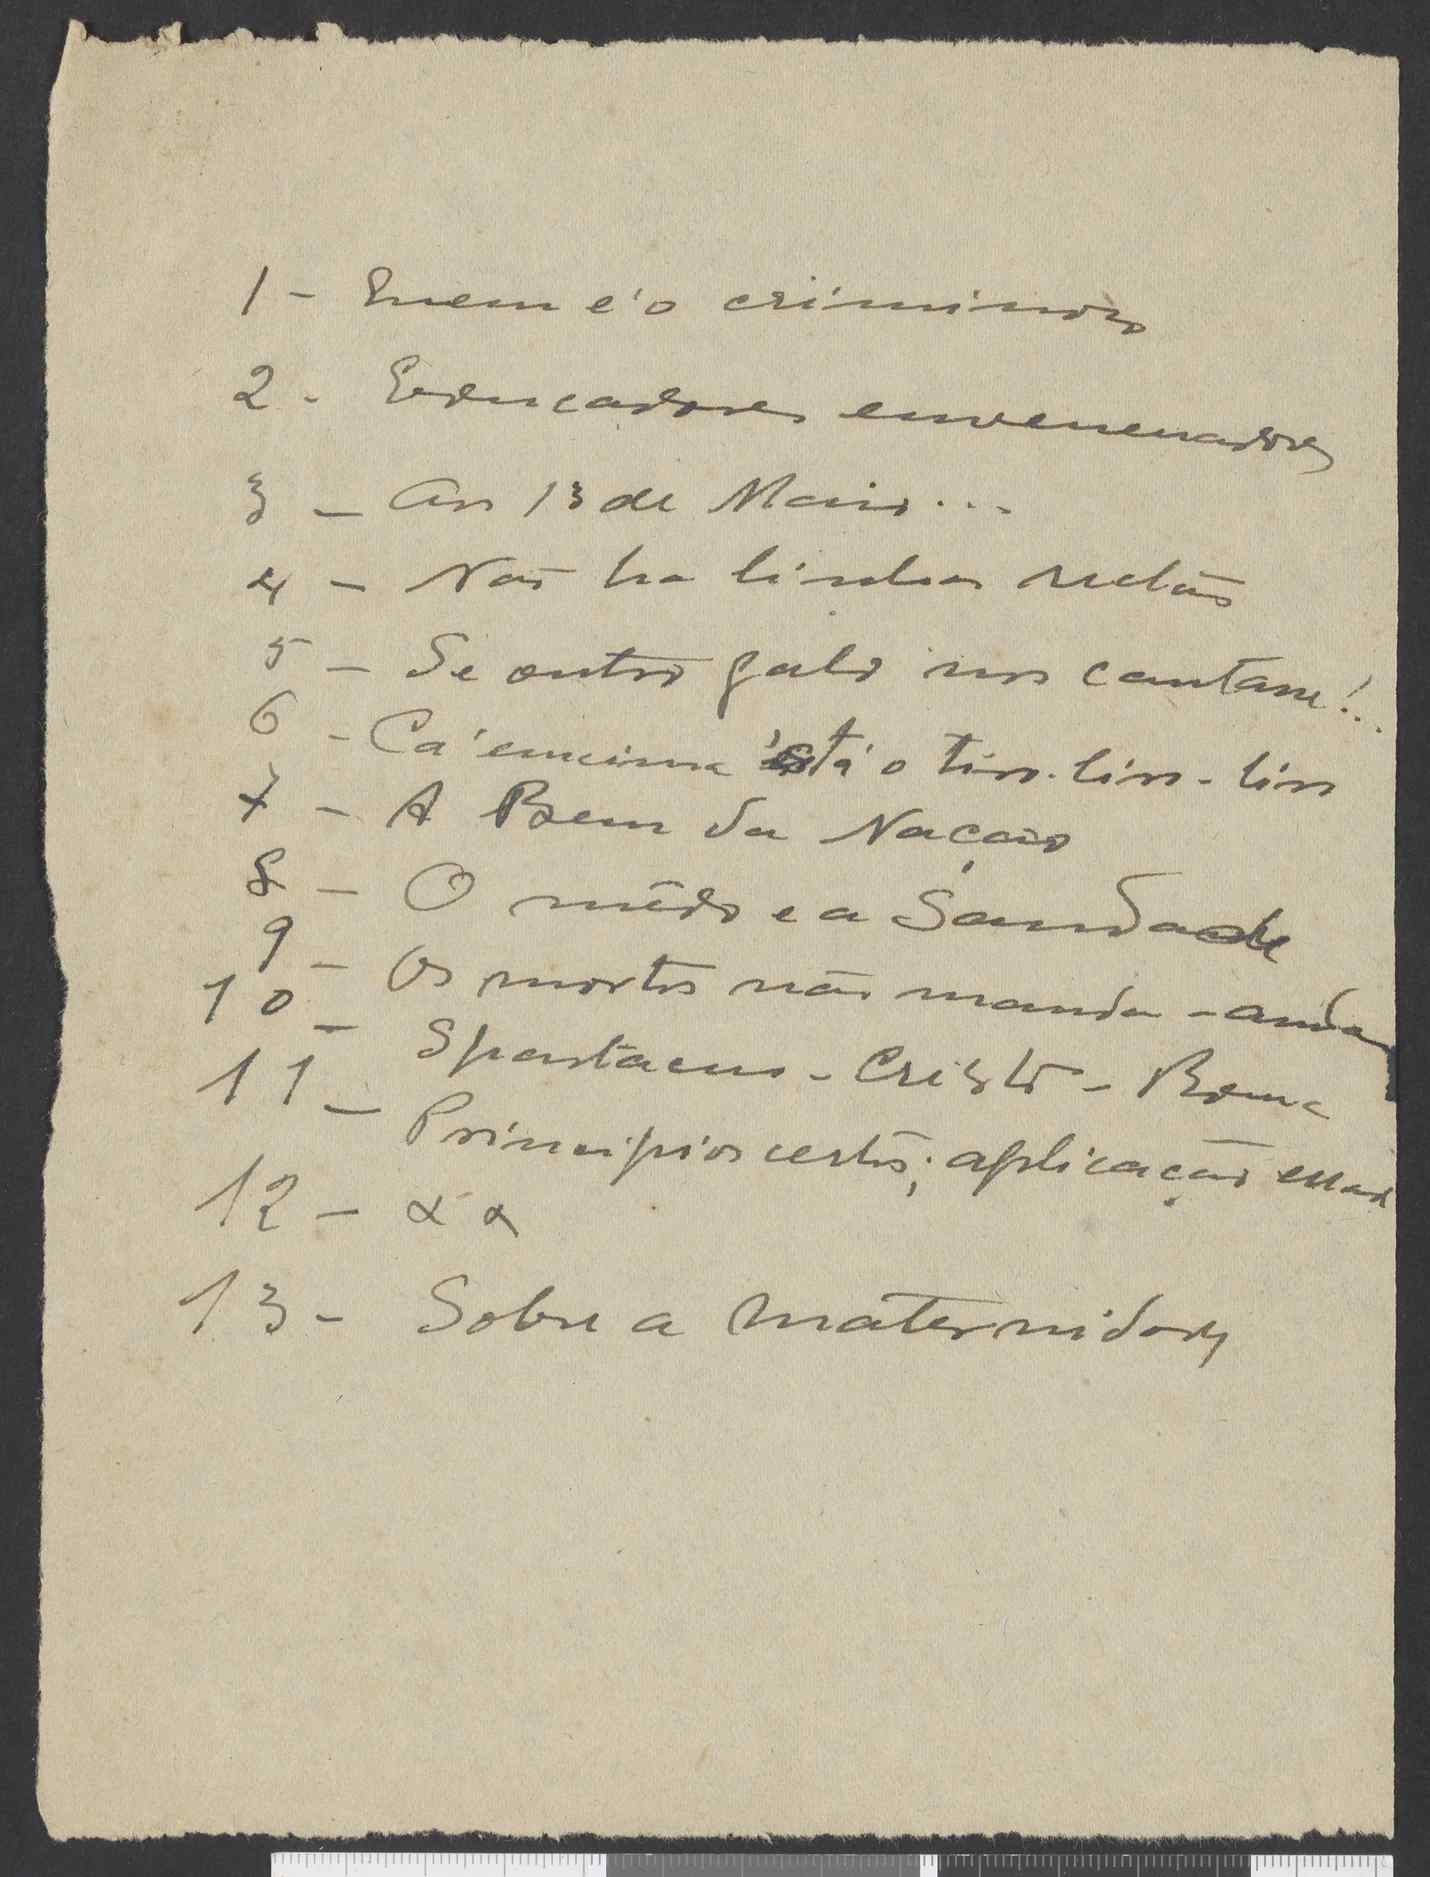 1 - Quem é o criminoso
2 - Educadores envenenadores
3 - Aos 13 de Maio...
4 - Não ha linhas rectas
5 - Se outro galo nos cantasse!...
6 - Cá encima está o tiro-liro-liro
7 - A Bem da Nação
8 - O mêdo e a Saudade
9 - Os mortos não manda-
10 - Spartacus - Cristo - Roma
11 - Principios certos; aplicação
12 - x x
13 - Sobre a maternidade